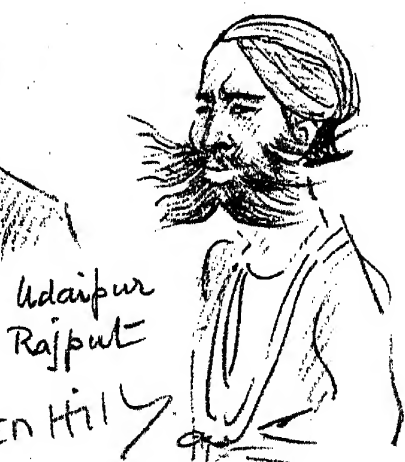 Udaipur
Rajput
Hill